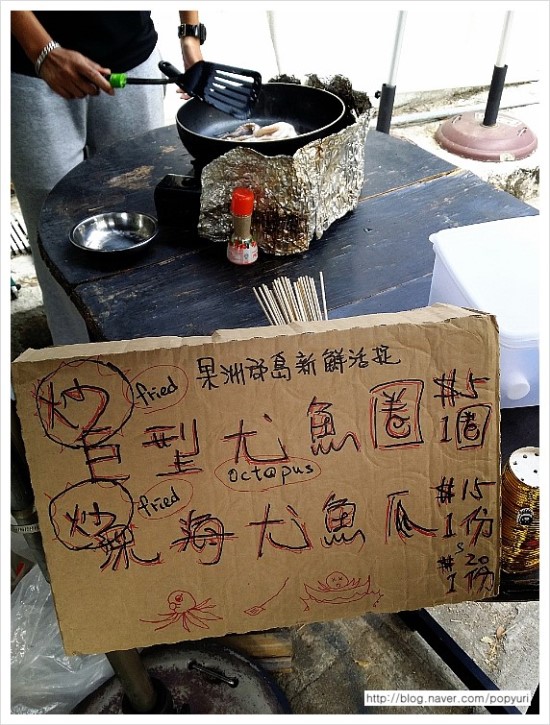 果洲群島新鮮活捉
炒 fried
巨型尤魚圈 $5 1圈
octapus
炒 fried
深海尤魚瓜 $15 1份
$20 1份
http://blog.naver.com/popyuri